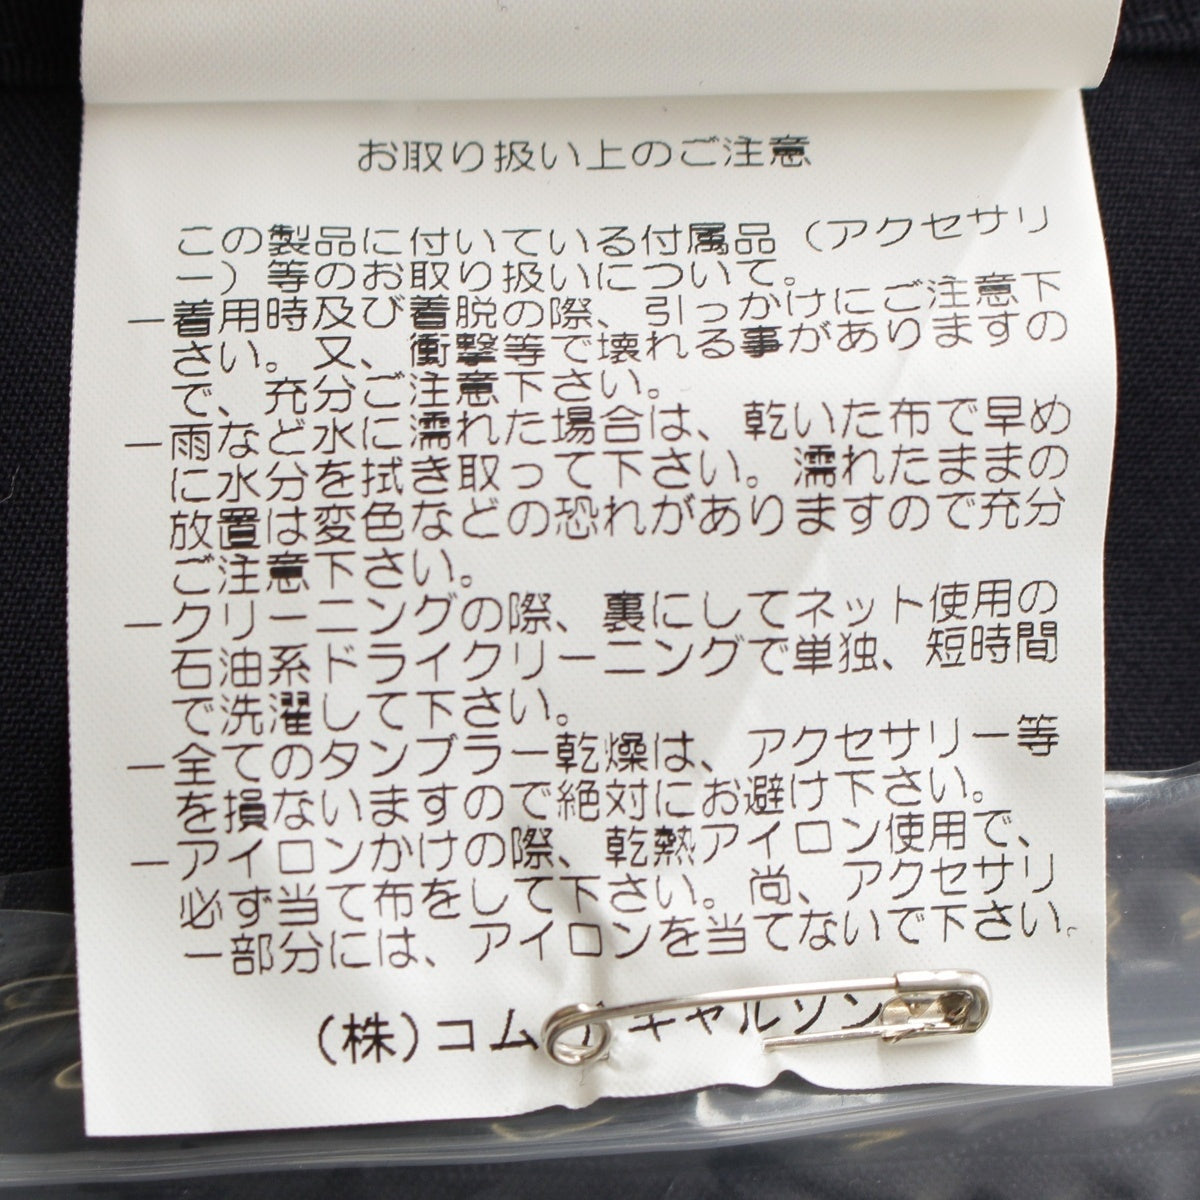 お取り扱い上のご注意
この製品に付いている付属品（アクセサリ
ー）等のお取り扱いについて。
ー着用時及び着脱の際、引っかけにご注意下
さい。又、衝撃等で壊れる事がありますの
で、充分ご注意下さい。
ー雨など水に濡れた場合は、乾いた布で早め
に水分を拭き取って下さい。濡れたままの
放置は変色などの恐れがありますので充分
ご注意下さい。
ークリーニングの際、裏にしてネット使用の
石油系ドライクリーニングで単独、短時間
で洗濯して下さい。
ー全てのタンブラー乾燥は、アクセサリー等
を損ないますので絶対にお避け下さい。
ーアイロンかけの際、乾熱アイロン使用で、
必ず当て布をして下さい。尚、アクセサリ
ー部分には、アイロンを当てないで下さい。
(株)コム キャルソン